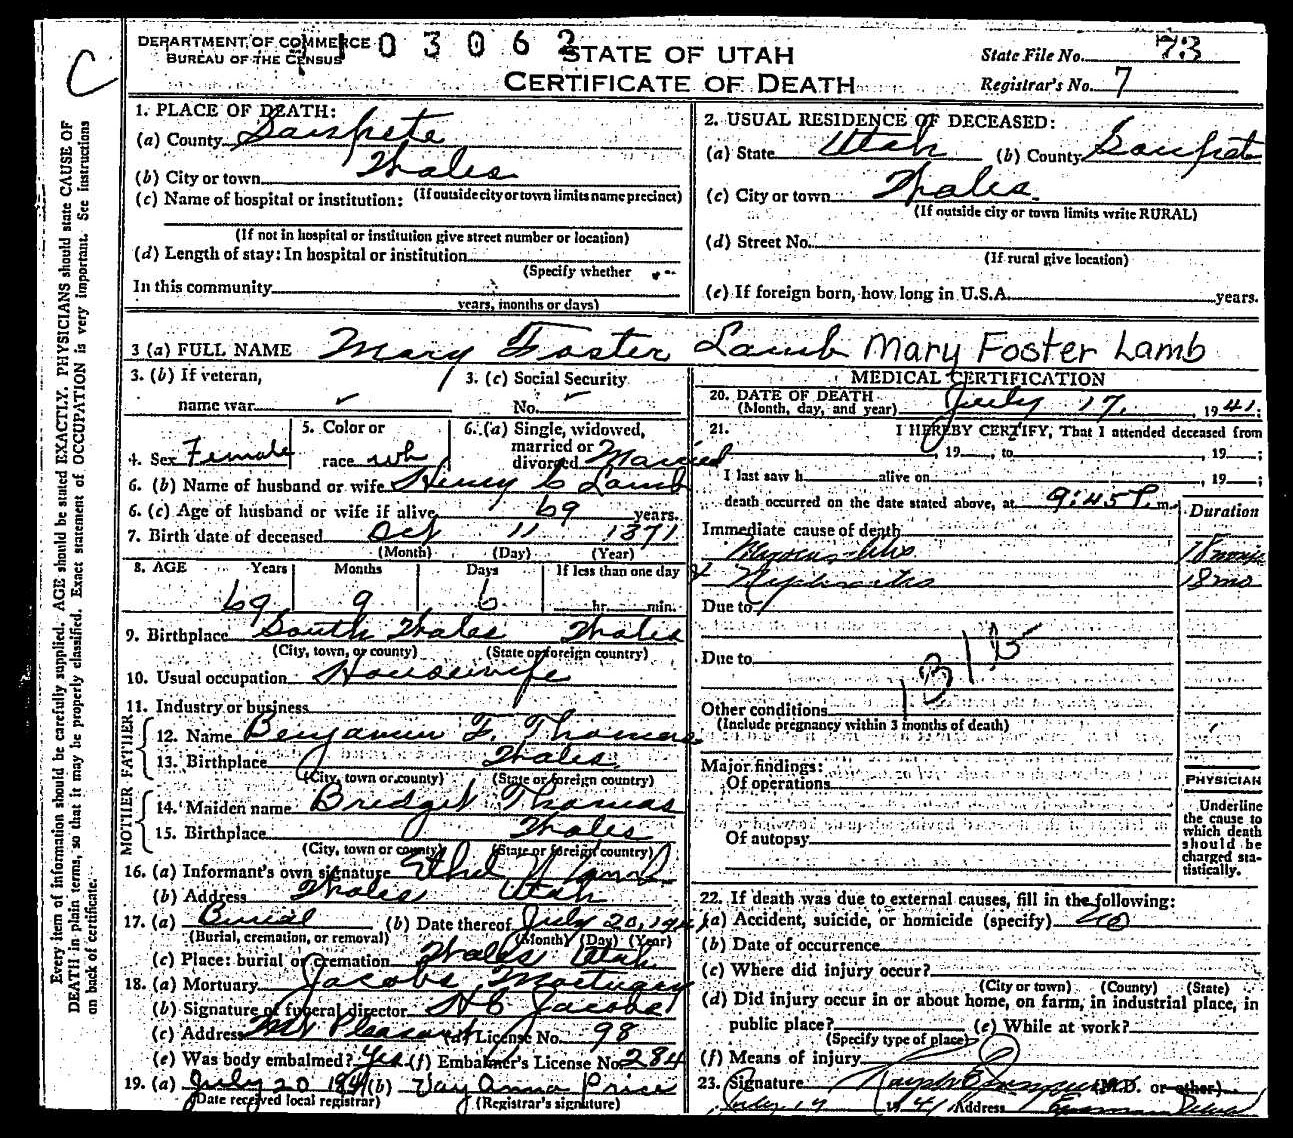 C
DEPARTMENT OF COMMERCE
BUREAU OF THE CENSUS
103062
STATE OF UTAH
CERTIFICATE OF DEATH
State File No. 73
Registrar's No. 7
1. PLACE OF DEATH:
(a) County Sanpete
(b) City or town Wales
(If outside city or town limits name precinct)
(c) Name of hospital or institution:
(If not in hospital or institution give street number or location)
(d) Length of stay: In hospital or institution
(Specify whether
In this community
years, months or days)
2. USUAL RESIDENCE OF DECEASED:
(a) State Utah (b) County Sanpete
(c) City or town Wales.
(If outside city or town limits write RURAL)
(d) Street No.
(If rural give location)
(e) If foreign born, how long in U.S.A. years.
3 (a) FULL NAME Mary Foster Lamb Mary Foster Lamb
3. (b) If veteran, name war
3. (c) Social Security No.
4. Sex Female
5. Color or race wh
6. (a) Single, widowed, married or divorced Married
6. (b) Name of husband or wife Henry C Lamb
6. (c) Age of husband or wife if alive 69 years.
7. Birth date of deceased Oct 11 1871
(Month) (Day) (Year)
8. AGE Years Months Days If less than one day
69 9 6 hr. min.
9. Birthplace South Wales Wales
(City, town, or county) (State or foreign country)
10. Usual occupation Housewife
11. Industry or business
FATHER
12. Name Benjamin F. Thomas
13. Birthplace Wales.
(City, town or county) (State or foreign country)
MOTHER
14. Maiden name Bridget Thomas
15. Birthplace Wales
(City, town or county) (State or foreign country)
16. (a) Informant's own signature Ethel Lamb
(b) Address Wales Utah
17. (a) Burial (b) Date thereof July 20, 1941
(Burial, cremation, or removal) (Month) (Day) (Year)
(c) Place: burial or cremation Wales Utah
18. (a) Mortuary Jacobs Mortuary
(b) Signature of funeral director H C Jacobs
(c) Address Mt Pleasant (d) License No. 98
(e) Was body embalmed? Yes (f) Embalmer's License No. 284
19. (a) July 20 1941 (b) Anna Price
(Date received local registrar) (Registrar's signature)
MEDICAL CERTIFICATION
20. DATE OF DEATH
(Month, day, and year) July 17, 1941;
21. I HEREBY CERTIFY, That I attended deceased from
, 19 , to , 19 ;
I last saw h alive on , 19 ;
death occurred on the date stated above, at 9:45 P. m.
Duration
Immediate cause of death
Myocarditis 18 months
& Nephritis 18 mo
Due to
Due to
131b
Other conditions
(Include pregnancy within 3 months of death)
Major findings:
Of operations
Of autopsy
PHYSICIAN
Underline
the cause to
which death
should be
charged sta-
tistically.
22. If death was due to external causes, fill in the following:
(a) Accident, suicide, or homicide (specify) no
(b) Date of occurrence
(c) Where did injury occur?
(City or town) (County) (State)
(d) Did injury occur in or about home, on farm, in industrial place, in
public place? (e) While at work?
(Specify type of place)
(f) Means of injury
23. Signature (M.D. or other)
July 19 1941 Address
Every item of information should be carefully supplied. AGE should be stated EXACTLY. PHYSICIANS should state CAUSE OF
DEATH in plain terms, so that it may be properly classified. Exact statement of OCCUPATION is very important. See instructions
on back of certificate.